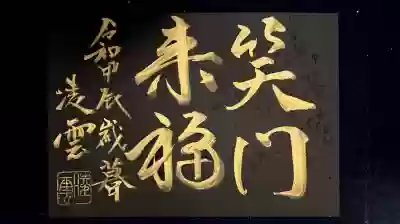 笑门
来福
令和甲辰歳暮
凌雲